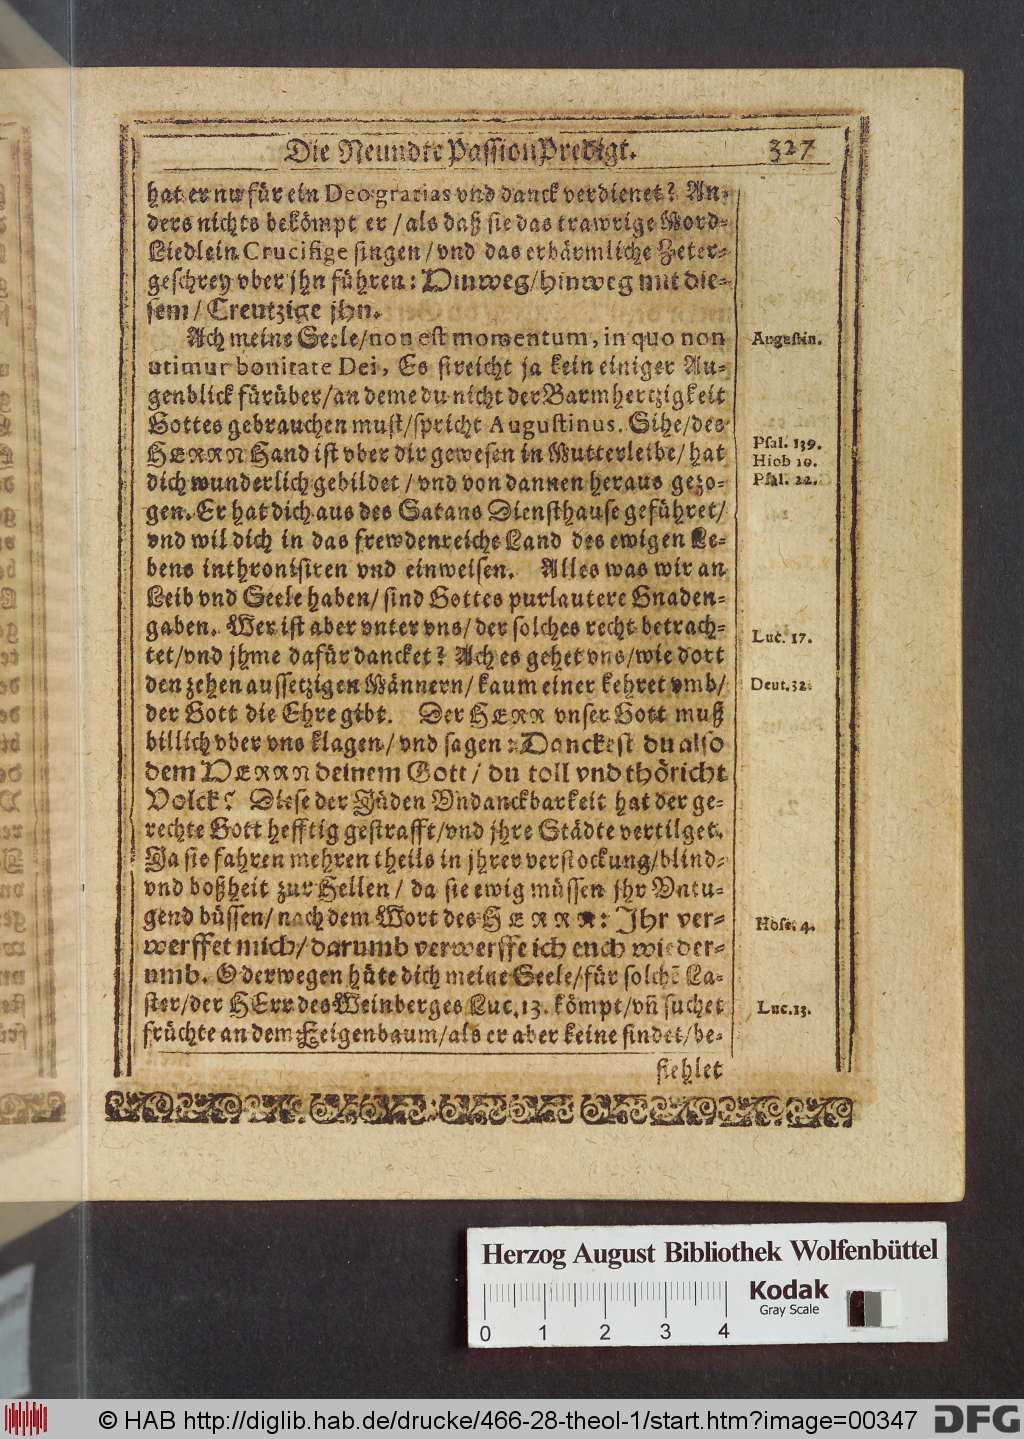 Die Neundte PassionPredigt. 327
hat er nu für ein Deo gratias vnd danck verdienet? An-
ders nichts bekömpt er / als daß sie das trawrige Mord-
Liedlein Crucifige singen / vnd das erbärmliche Zeter-
geschrey vber jhn führen: Hinweg / hinweg mit die-
sem / Creutzige jhn.
Ach meine Seele / non est momentum, in quo non
utimur bonitate Dei, Es streicht ja kein einiger Au-
genblick fürüber / an deme du nicht der Barmhertzigkeit
Gottes gebrauchen must / spricht Augustinus. Sihe / des
HERRN Hand ist vber dir gewesen in Mutterleibe / hat
dich wunderlich gebildet / vnd von dannen heraus gezo-
gen. Er hat dich aus des Satans Diensthause geführet /
vnd wil dich in das frewdenreiche Land des ewigen Le-
bens inthronisiren vnd einweisen. Alles was wir an
Leib vnd Seele haben / sind Gottes purlautere Gnaden-
gaben. Wer ist aber vnter vns / der solches recht betrach-
tet / vnd jhme dafür dancket? Ach es gehet vns / wie dort
den zehen aussetzigen Männern / kaum einer kehret vmb /
der Gott die Ehre gibt. Der HERR vnser Gott muß
billich vber vns klagen / vnd sagen: Danckest du also
dem HERRN deinem Gott / du toll vnd thöricht
Volck? Diese der Jüden Vndanckbarkeit hat der ge-
rechte Gott hefftig gestrafft / vnd jhre Städte vertilget.
Ja sie fahren mehren theils in jhrer verstockung / blind-
vnd boßheit zur Hellen / da sie ewig müssen jhr Vntu-
gend büssen / nach dem Wort des HERRN: Jhr ver-
werffet mich / darumb verwerffe ich euch wieder-
umb. O derwegen hüte dich meine Seele / für solchē La-
ster / der HErr des Weinberges Luc. 13. kömpt / vn̄ suchet
früchte an dem Feigenbaum / als er aber keine findet / be-
fiehlet
Augustin.
Psal. 139.
Hiob 10.
Psal. 22.
Luc. 17.
Deut. 32.
Hose. 4.
Luc. 13.
Herzog August Bibliothek Wolfenbüttel
0 1 2 3 4
Kodak
Gray Scale
© HAB http://diglib.hab.de/drucke/466-28-theol-1/start.htm?image=00347
DFG